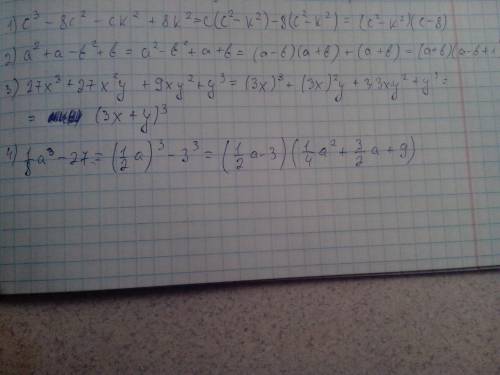 1) c³ - 8c² - ck² + 8k² = c(c² - k²) - 8(c² - k²) = (c² - k²)(c - 8)
2) a² + a - b² + b = a² - b² + a + b = (a - b)(a + b) + (a + b) = (a + b)(a - b + 1
3) 27x³ + 27x²y + 9xy² + y³ = (3x)³ + (3x)²y + 3·3xy² + y³ =
= (3x + y)³
4) 1/8 a³ - 27 = (1/2 a)³ - 3³ = (1/2 a - 3)(1/4 a² + 3/2 a + 9)